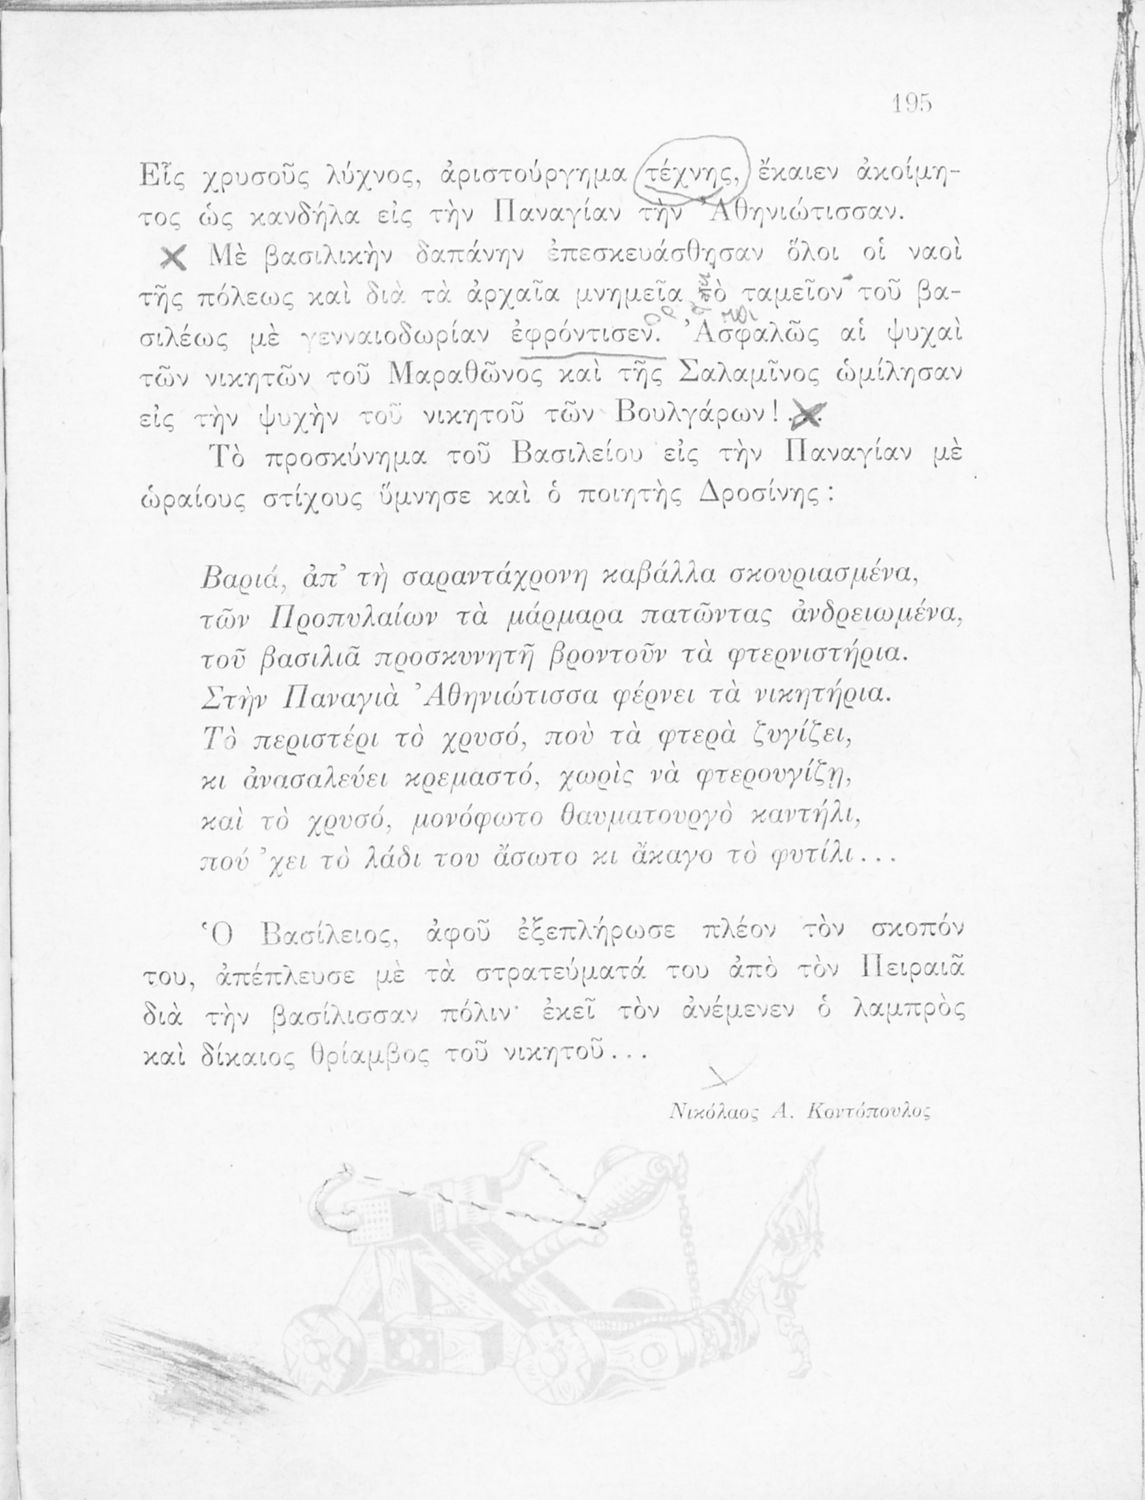 195
Εἷς χρυσοῦς λύχνος, ἀριστούργημα τέχνης, ἔκαιεν ἀκοίμη-
τος ὡς κανδήλα εἰς τὴν Παναγίαν τὴν Ἀθηνιώτισσαν.
Μὲ βασιλικὴν δαπάνην ἐπεσκευάσθησαν ὅλοι οἱ ναοὶ
τῆς πόλεως καὶ διὰ τὰ ἀρχαῖα μνημεῖα τὸ ταμεῖον τοῦ βα-
σιλέως μὲ γενναιοδωρίαν ἐφρόντισεν. Ἀσφαλῶς αἱ ψυχαὶ
τῶν νικητῶν τοῦ Μαραθῶνος καὶ τῆς Σαλαμῖνος ὡμίλησαν
εἰς τὴν ψυχὴν τοῦ νικητοῦ τῶν Βουλγάρων!...
Τὸ προσκύνημα τοῦ Βασιλείου εἰς τὴν Παναγίαν μὲ
ὡραίους στίχους ὕμνησε καὶ ὁ ποιητὴς Δροσίνης :
Βαριά, ἀπ’ τὴ σαραντάχρονη καβάλλα σκουριασμένα,
τῶν Προπυλαίων τὰ μάρμαρα πατῶντας ἀνδρειωμένα,
τοῦ βασιλιᾶ προσκυνητῆ βροντοῦν τὰ φτερνιστήρια.
Στὴν Παναγιὰ Ἀθηνιώτισσα φέρνει τὰ νικητήρια.
Τὸ περιστέρι τὸ χρυσό, ποὺ τὰ φτερὰ ζυγίζει,
κι ἀνασαλεύει κρεμαστό, χωρὶς νὰ φτερουγίζῃ,
καὶ τὸ χρυσό, μονόφωτο θαυματουργὸ καντήλι,
πού ’χει τὸ λάδι του ἄσωτο κι ἄκαγο τὸ φυτίλι...
Ὁ Βασίλειος, ἀφοῦ ἐξεπλήρωσε πλέον τὸν σκοπόν
του, ἀπέπλευσε μὲ τὰ στρατεύματά του ἀπὸ τὸν Πειραιᾶ
διὰ τὴν βασίλισσαν πόλιν· ἐκεῖ τὸν ἀνέμενεν ὁ λαμπρὸς
καὶ δίκαιος θρίαμβος τοῦ νικητοῦ...
Νικόλαος Α. Κοντόπουλος